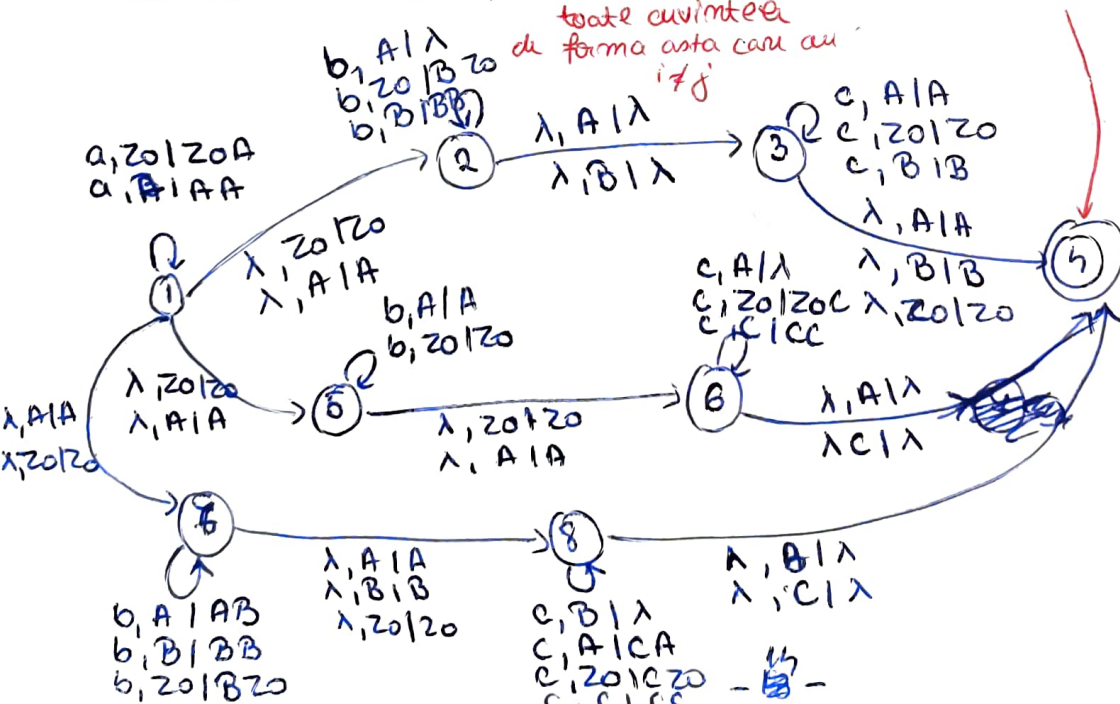 toate cuvintele
de forma asta care au
i≠j
b, A|λ
b, z0|Bz0
b, B|BB
a, z0|z0A
a, A|AA
2
λ, A|λ
λ, B|λ
3
c, A|A
c, z0|z0
c, B|B
1
λ, z0|z0
λ, A|A
λ, A|A
λ, B|B
λ, z0|z0
b, A|A
b, z0|z0
c, A|λ
c, z0|z0C
c, C|CC
λ, z0|z0
λ, A|A
5
λ, z0|z0
λ, A|A
6
λ, A|λ
λ C|λ
λ, A|A
λ, z0|z0
λ, A|A
λ, B|B
λ, z0|z0
8
λ, B|λ
λ, C|λ
b, A|AB
b, B|BB
b, z0|Bz0
c, B|λ
c, A|CA
c, z0|Cz0